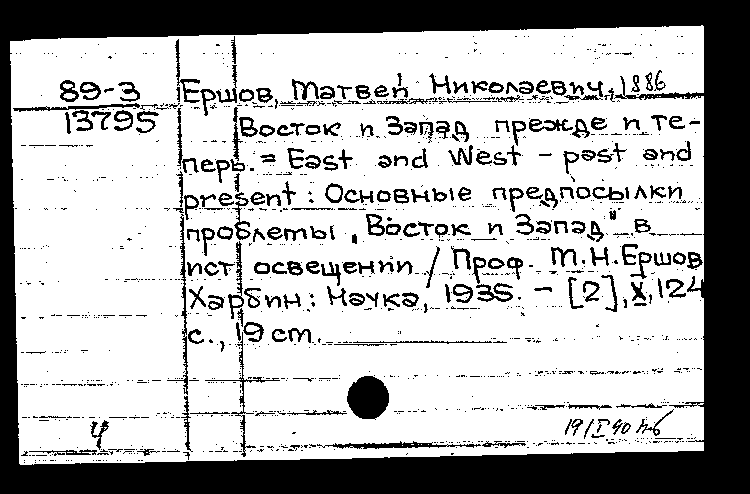 89-3
13795
Ершов, Матвей Николаевич, 1886
Восток и Запад прежде и те-
перь. = East and West - past and
present : Основные предпосылки
проблемы "Восток и Запад" в
ист. освещении / Проф. М.Н.Ершов
Харбин : Наука, 1935. - [2], X, 124
с., 19 cm.
Ч
19/I 90